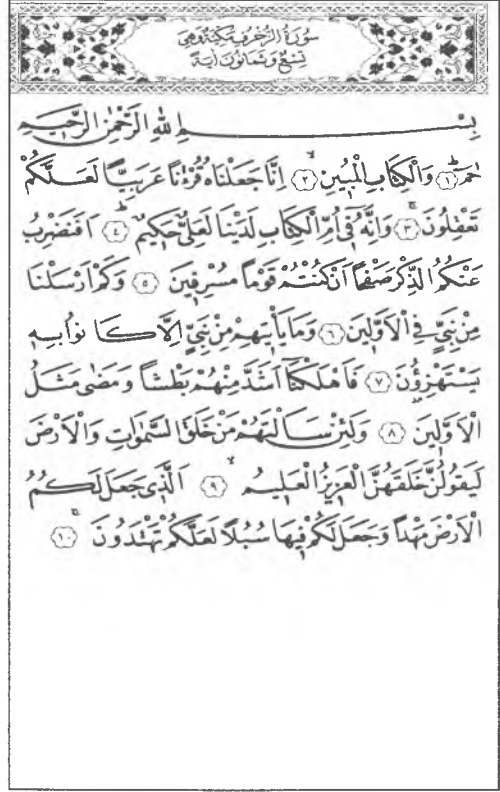 سُورَةُ الزُّخْرُفِ مَكِّيَّةٌ وَهِيَ
تِسْعٌ وَثَمَانُونَ اٰيَةً
بِسْمِ اللهِ الرَّحْمٰنِ الرَّحٖيمِ
حٰمٓ ﴿١﴾ وَالْكِتَابِ الْمُبٖينِ ﴿٢﴾ اِنَّا جَعَلْنَاهُ قُرْءٰناً عَرَبِيًّا لَعَلَّكُمْ
تَعْقِلُونَ ﴿٣﴾ وَاِنَّهُ فٖٓى اُمِّ الْكِتَابِ لَدَيْنَا لَعَلِىٌّ حَكٖيمٌ ﴿٤﴾ اَفَنَضْرِبُ
عَنْكُمُ الذِّكْرَ صَفْحاً اَنْ كُنْتُمْ قَوْماً مُسْرِفٖينَ ﴿٥﴾ وَكَمْ اَرْسَلْنَا
مِنْ نَبِىٍّ فِى الْاَوَّلٖينَ ﴿٦﴾ وَمَا يَاْتٖيهِمْ مِنْ نَبِىٍّ اِلَّا كَانُوا بِهٖ
يَسْتَهْزِؤُنَ ﴿٧﴾ فَاَهْلَكْنَٓا اَشَدَّ مِنْهُمْ بَطْشاً وَمَضٰى مَثَلُ
الْاَوَّلٖينَ ﴿٨﴾ وَلَئِنْ سَاَلْتَهُمْ مَنْ خَلَقَ السَّمٰوَاتِ وَالْاَرْضَ
لَيَقُولُنَّ خَلَقَهُنَّ الْعَزٖيزُ الْعَلٖيمُ ﴿٩﴾ اَلَّذٖى جَعَلَ لَكُمُ
الْاَرْضَ مَهْداً وَجَعَلَ لَكُمْ فٖيهَا سُبُلاً لَعَلَّكُمْ تَهْتَدُونَ ﴿١٠﴾